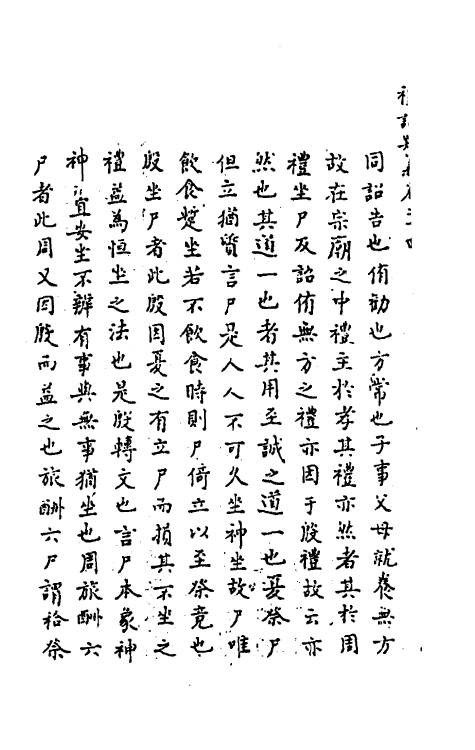 禮記集說卷六十四
同詔告也侑勸也方常也子事父母就養無方
故在宗廟之中禮主於孝其禮亦然者其於周
禮坐尸及詔侑無方之禮亦因于殷禮故云亦
然也其道一也者其用至誠之道一也夏祭尸
但立猶質言尸是人人不可久坐神坐故尸唯
飲食蹔坐若不飲食時則尸倚立以至祭竟也
殷坐尸者此殷因夏之有立尸而損其不坐之
禮益為恒坐之法也是殷轉文也言尸本象神
神宜安坐不辨有事與無事猶坐也周旅酬六
尸者此周又因殷而益之也旅酬六尸謂祫祭